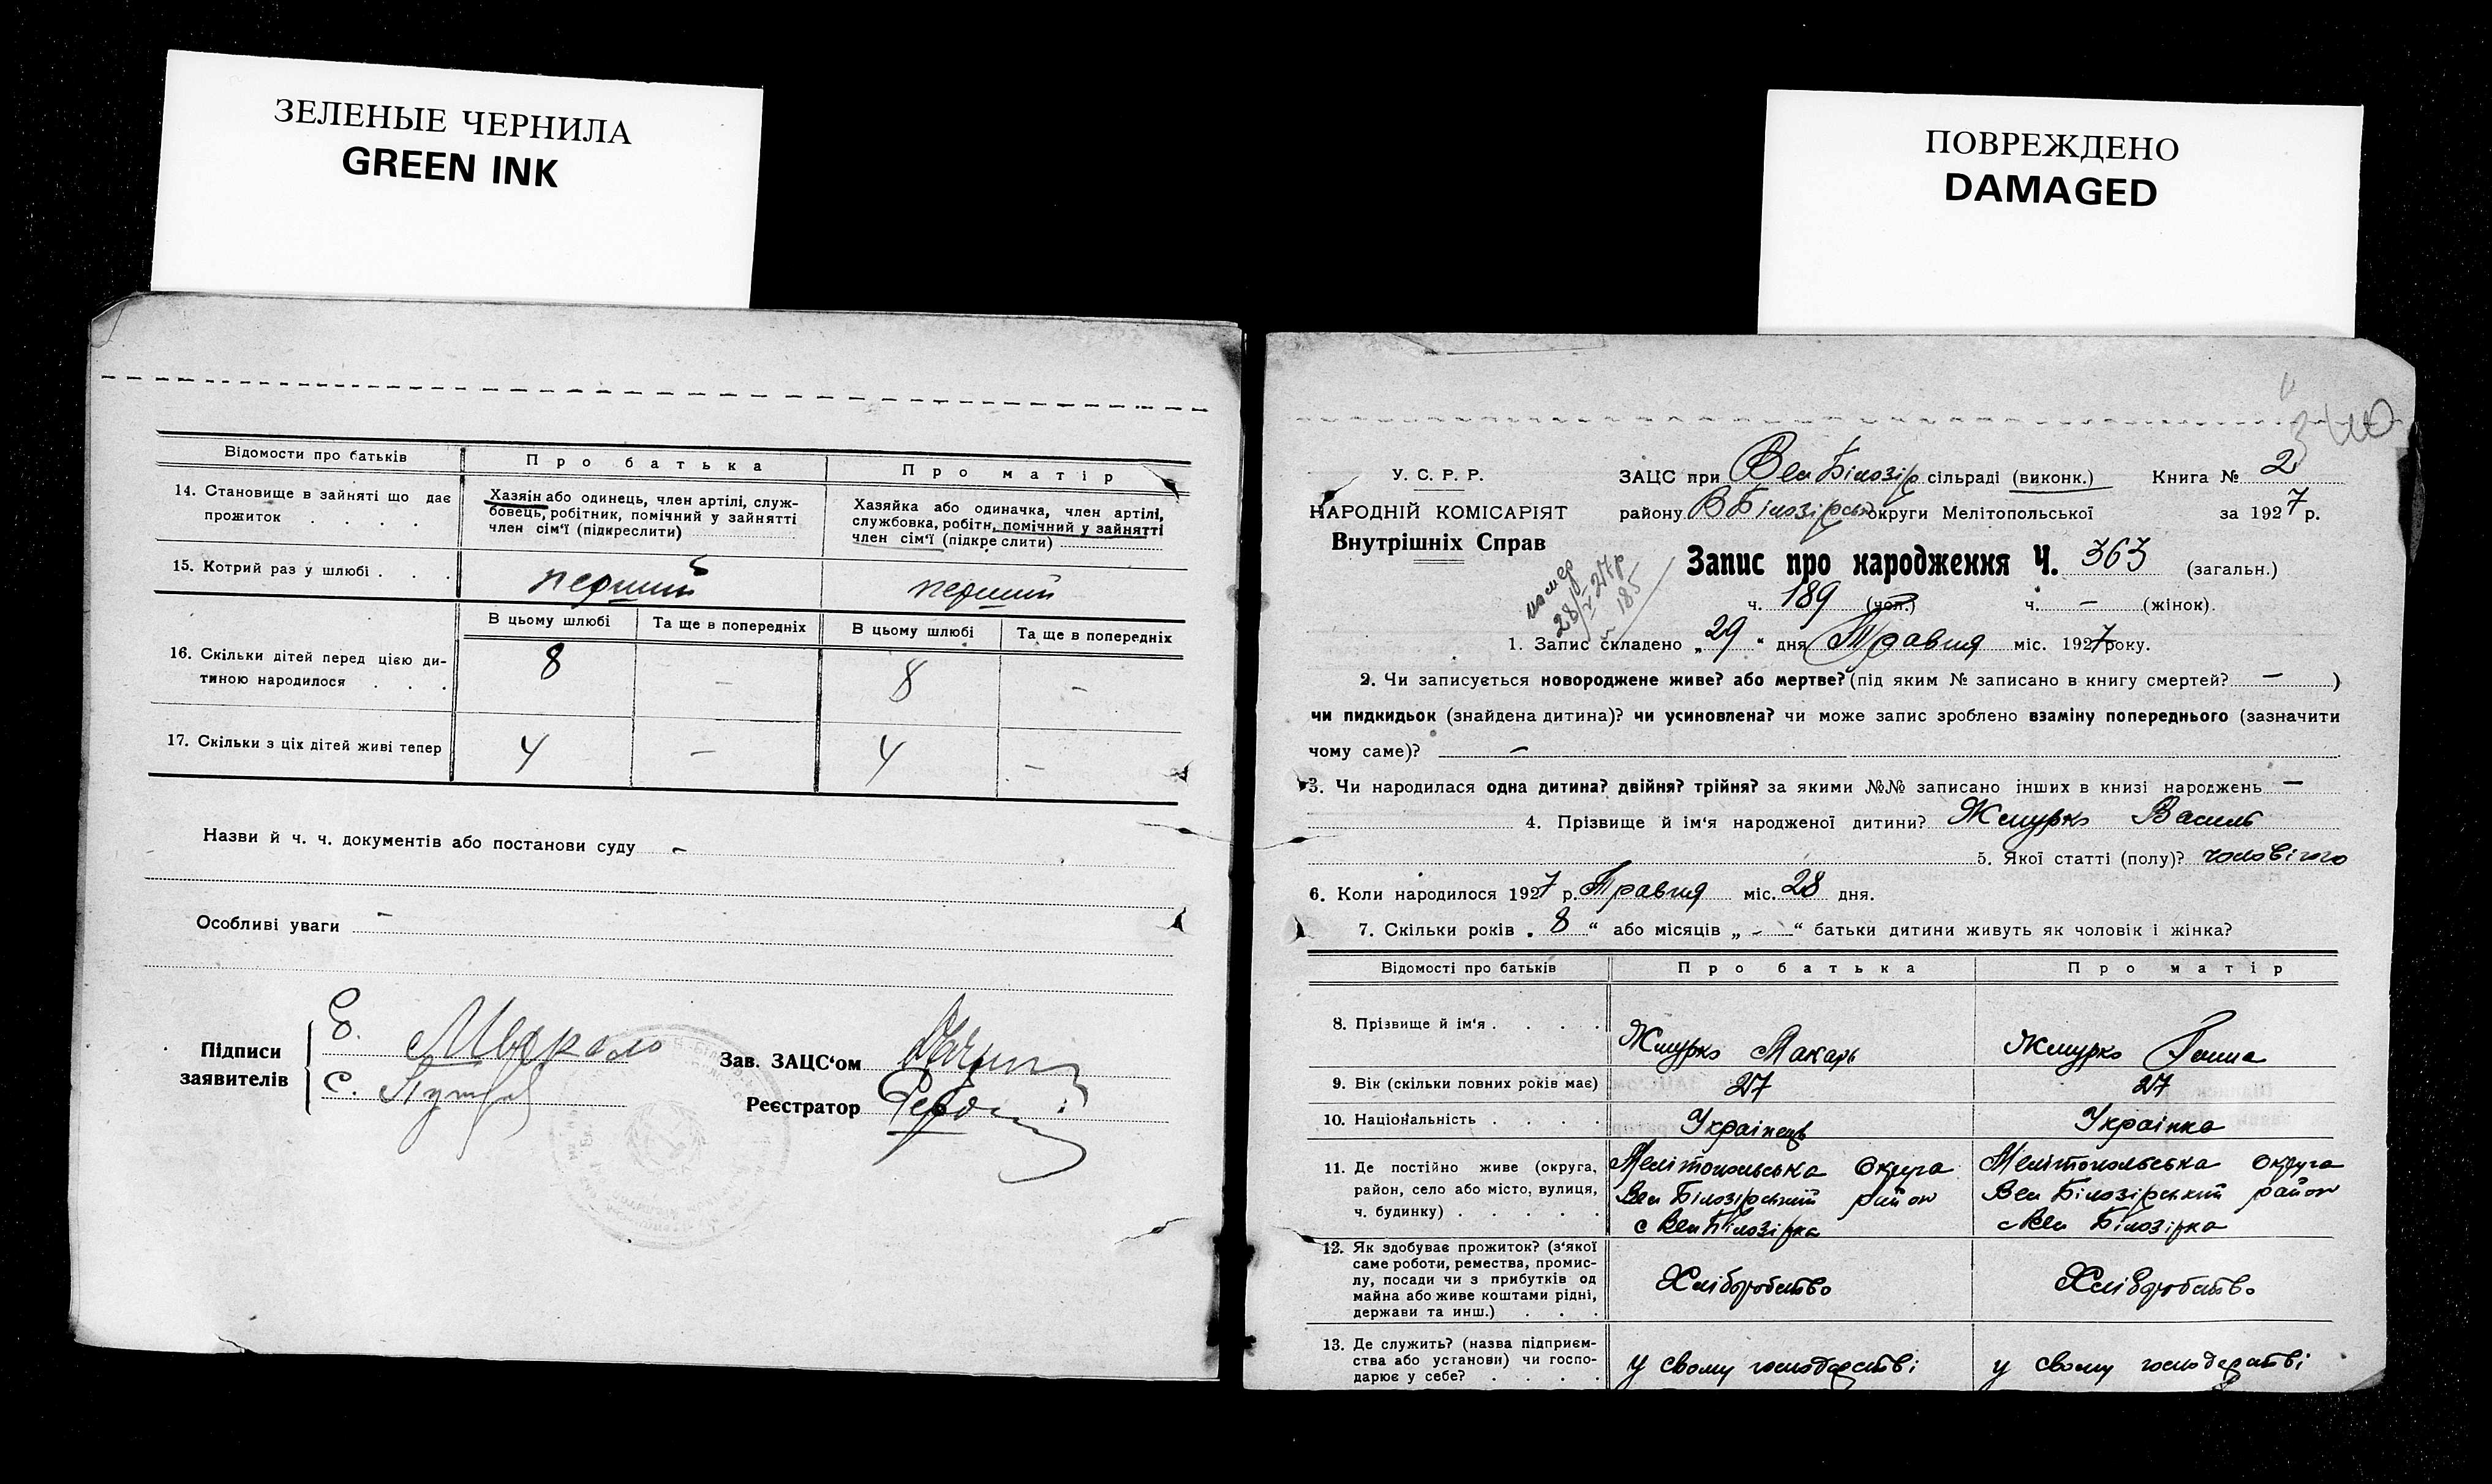 ЗЕЛЕНЫЕ ЧЕРНИЛА
GREEN INK
ПОВРЕЖДЕНО
DAMAGED
Відомости про батьків
Про батька
Про матір
14. Становище в зайняті що дає
прожиток . . . .
Хазяін або одинець, член артілі, служ-
бовець, робітник, помічний у зайнятті
член сім'ї (підкреслити)
Хазяйка або одиначка, член артілі,
службовка, робітн, помічний у зайнятті
член сім'ї (підкреслити)
15. Котрий раз у шлюбі . . .
перший
перший
В цьому шлюбі
Та ще в попередніх
В цьому шлюбі
Та ще в попередніх
16. Скільки дітей перед цією ди-
тиною народилося . . .
8 – 8 –
17. Скільки з ціх дітей живі тепер
4 – 4 –
Назви й ч. ч. документів або постанови суду –
Особливі уваги –
Підписи
заявителів
Зав. ЗАЦС'ом
Реєстратор
У. С. Р. Р.
НАРОДНІЙ КОМІСАРІЯТ
Внутрішніх Справ
ЗАЦС при Вел Білозір сільраді (виконк.) Книга № 2
району В Білозірськ округи Мелітопольської за 1927 р.
Запис про народження Ч. 363 (загальн.)
ч. 189 (чол.) ч. – (жінок).
1. Запис складено „29“ дня Травня міс. 1927 року.
2. Чи записується новороджене живе? або мертве? (під яким № записано в книгу смертей? – )
чи пидкидьок (знайдена дитина)? чи усиновлена? чи може запис зроблено взаміну попереднього (зазначити
чому саме)? –
3. Чи народилася одна дитина? двійня? трійня? за якими №№ записано інших в книзі народжень –
4. Прізвище й ім'я народженої дитини? Жмурко Василь
5. Якої статті (полу)? чоловічого
6. Коли народилося 1927 р. Травня міс. 28 дня.
7. Скільки років „8“ або місяців „-“ батьки дитини живуть як чоловік і жінка?
Відомості про батьків
Про батька
Про матір
8. Прізвище й ім'я . . . .
Жмурко Макарь
Жмурко Ганна
9. Вік (скільки повних років має)
27
27
10. Національність . . . .
Українець
Українка
11. Де постійно живе (округа,
район, село або місто, вулиця,
ч. будинку) . . . . .
Мелітопольська округа
Вел Білозірський район
с Вел Білозірка
Мелітопольська округа
Вел Білозірський район
с Вел Білозірка
12. Як здобуває прожиток? (з'якої
саме роботи, ремества, промис-
лу, посади чи з прибутків од
майна або живе коштами рідні,
держави та инш.) . . .
Хліборобство
Хліборобство
13. Де служить? (назва підприєм-
ства або установи) чи госпо-
дарює у себе? . . . .
у свому господарстві
у свому господарстві